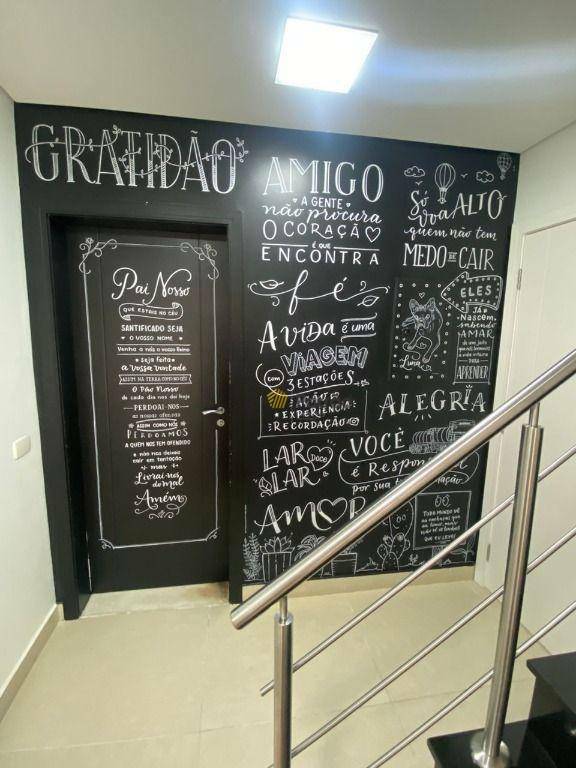 GRATIDÃO
Pai Nosso
QUE ESTAIS NO CÉU
SANTIFICADO SEJA
O VOSSO NOME
Venha a nós o vosso Reino
seja feita
a vossa vontade
ASSIM NA TERRA COMO NO CÉU
O Pão Nosso
de cada dia nos dai hoje
PERDOAI-NOS
as nossas ofensas
ASSIM COMO NÓS
PERDOAMOS
A QUEM NOS TEM OFENDIDO
não nos deixeis
cair em tentação
mas
Livrai-nos
do mal
Amém
AMIGO
A GENTE
não procura
O CORAÇÃO
é que
ENCONTRA
fé
A VIDA é uma
VIAGEM
com
3 ESTAÇÕES
AÇÃO
EXPERIÊNCIA
RECORDAÇÃO
LAR doce
LAR
AMOR
Só
voa ALTO
quem não tem
MEDO DE CAIR
Luna
ELES
JÁ
Nascem
sabendo
AMAR
de um jeito
que nós levamos
a vida inteira
para
APRENDER
ALEGRIA
VOCÊ
É Respon
por sua
TODO MUNDO VÊ
que eu
mas
QUE EU LEVO